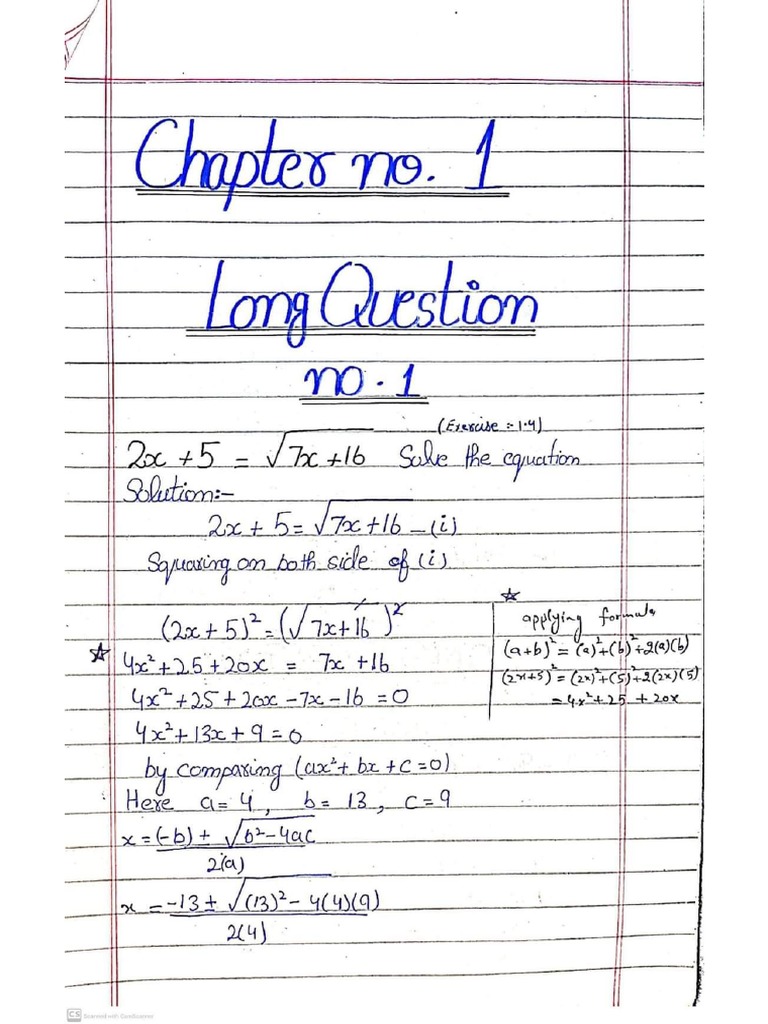 Chapter no. 1
Long Question
no. 1
(Exercise :- 1.4)
2x + 5 = √7x + 16 Solve the equation
Solution:-
2x + 5 = √7x + 16 – (i)
Squaring on both side of (i)
(2x + 5)² = (√7x + 16)²
☆ 4x² + 25 + 20x = 7x + 16
4x² + 25 + 20x – 7x – 16 = 0
4x² + 13x + 9 = 0
by comparing (ax² + bx + c = 0)
Here a = 4, b = 13, c = 9
x = (-b) ± √b² – 4ac
2(a)
x = -13 ± √(13)² – 4(4)(9)
2(4)
☆
applying formula
(a+b)² = (a)² + (b)² + 2(a)(b)
(2x+5)² = (2x)² + (5)² + 2(2x)(5)
= 4x² + 25 + 20x
CS Scanned with CamScanner